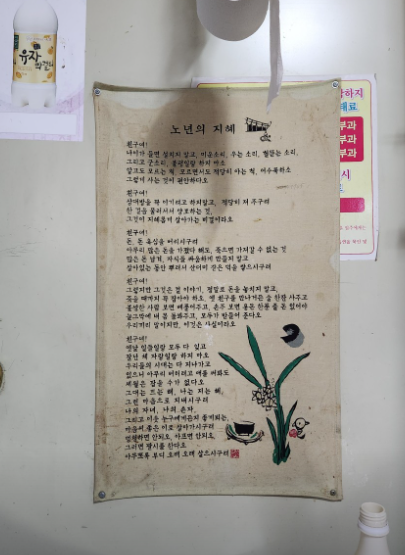 유자
막걸리
노년의 지혜
친구여!
나이가 들면 설치지 말고, 미운소리, 우는 소리, 헐뜯는 소리,
그리고 군소리, 불평일랑 하지 마소
알고도 모르는 척, 모르면서도 적당히 아는 척, 어수룩하소
그렇게 사는 것이 편안하다오
친구여!
상대방을 꼭 이기려고 하지말고, 적당히 져 주구려
한 걸음 물러서서 양보하는 것,
그것이 지혜롭게 살아가는 비결이라오
친구여!
돈, 돈 욕심을 버리시구려
아무리 많은 돈을 가졌다 해도, 죽으면 가져갈 수 없는 것
많은 돈 남겨, 자식들 싸움하게 만들지 말고
살아있는 동안 많이 뿌려서 산더미 같은 덕을 쌓으시구려
친구여!
그렇지만 그것은 겉 이야기, 정말로 돈을 놓치지 말고,
죽을 때까지 꼭 잡아야 하오, 옛 친구를 만나거든 술 한잔 사주고
불쌍한 사람 보면 베풀어주고, 손주 보면 용돈 한푼 줄 돈 있어야
늘그막에 내 몸 돌봐주고, 모두가 받들어 준다오
우리끼리 말이지만, 이것은 사실이라오
친구여!
옛날 일들일랑 모두 다 잊고
잘난 체 자랑일랑 하지 마오
우리들의 시대는 다 지나가고
있으니 아무리 버티려고 애를 써봐도
세월은 잡을 수가 없다오
그대는 뜨는 해, 나는 지는 해,
그런 마음으로 지내시구려
나의 자녀, 나의 손자,
그리고 이웃 누구에게든지 좋게뵈는,
마음씨 좋은 이로 살아가시구려
멍청하면 안되오, 아프면 안되오,
그러면 괄시를 한다오
아무쪼록 부디 오래 오래 살으시구려
하지
부과
부과
부과